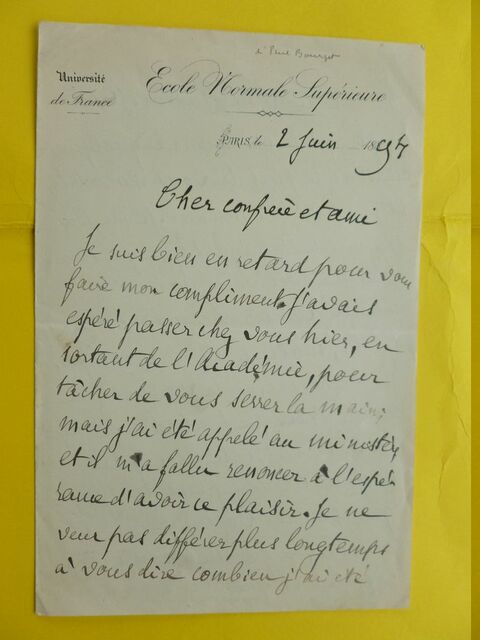 à Paul Bourget
Université
de France
Ecole Normale Supérieure
PARIS, le 2 Juin 1894
Cher confrère et ami
Je suis bien en retard pour vous
faire mon compliment. J'avais
espéré passer chez vous hier, en
sortant de l'Académie, pour
tâcher de vous serrer la main;
mais j'ai été appelé au ministère,
et il m'a fallu renoncer à l'espé-
rance d'avoir ce plaisir. Je ne
veux pas différer plus longtemps
à vous dire combien j'ai été